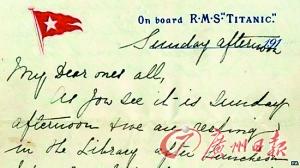 On board R·M·S "TITANIC".
Sunday afternoon 191
My Dear ones all,
As you see it is Sunday
afternoon & we are resting
in the Library after Luncheon
廣州日報